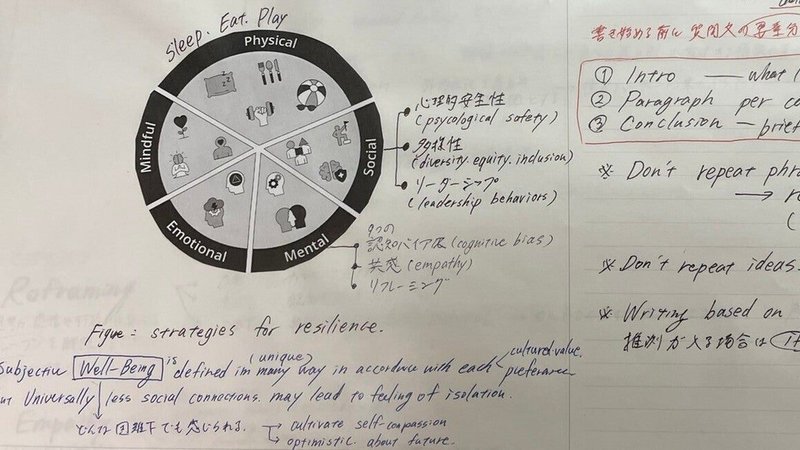 Sleep. Eat. Play
Physical
Mindful
Social
Emotional
Mental
心理的安全性
(psycological safety)
多様性
(diversity.equity.inclusion)
リーダーシップ
(leadership behaviors)
9つの
認知バイアス (cognitive bias)
共感 (empathy)
リフレーミング
Reframing
Figure: strategies for resilience.
Subjective Well-Being is defined in many way in accordance with each
(unique)
cultured.value.
preferance
Universally less social connections. may lead to feeling of isolation.
どんな困難下でも感じられる.
cultivate self-compassion
optimistic about future.
書き始める前に 質問文の
① Intro — what
② Paragraph per
③ Conclusion — brief
※ Don't repeat
→
※ Don't repeat ideas.
※ Writing based on
推測が入る場合は